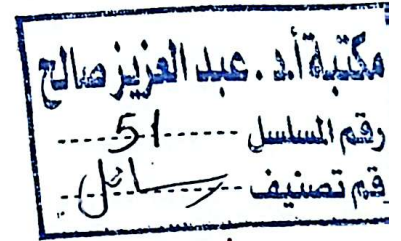 مكتبة أ.د. عبد العزيز صالح
رقم المسلسل ------51------
قم تصنيف --رسائل--